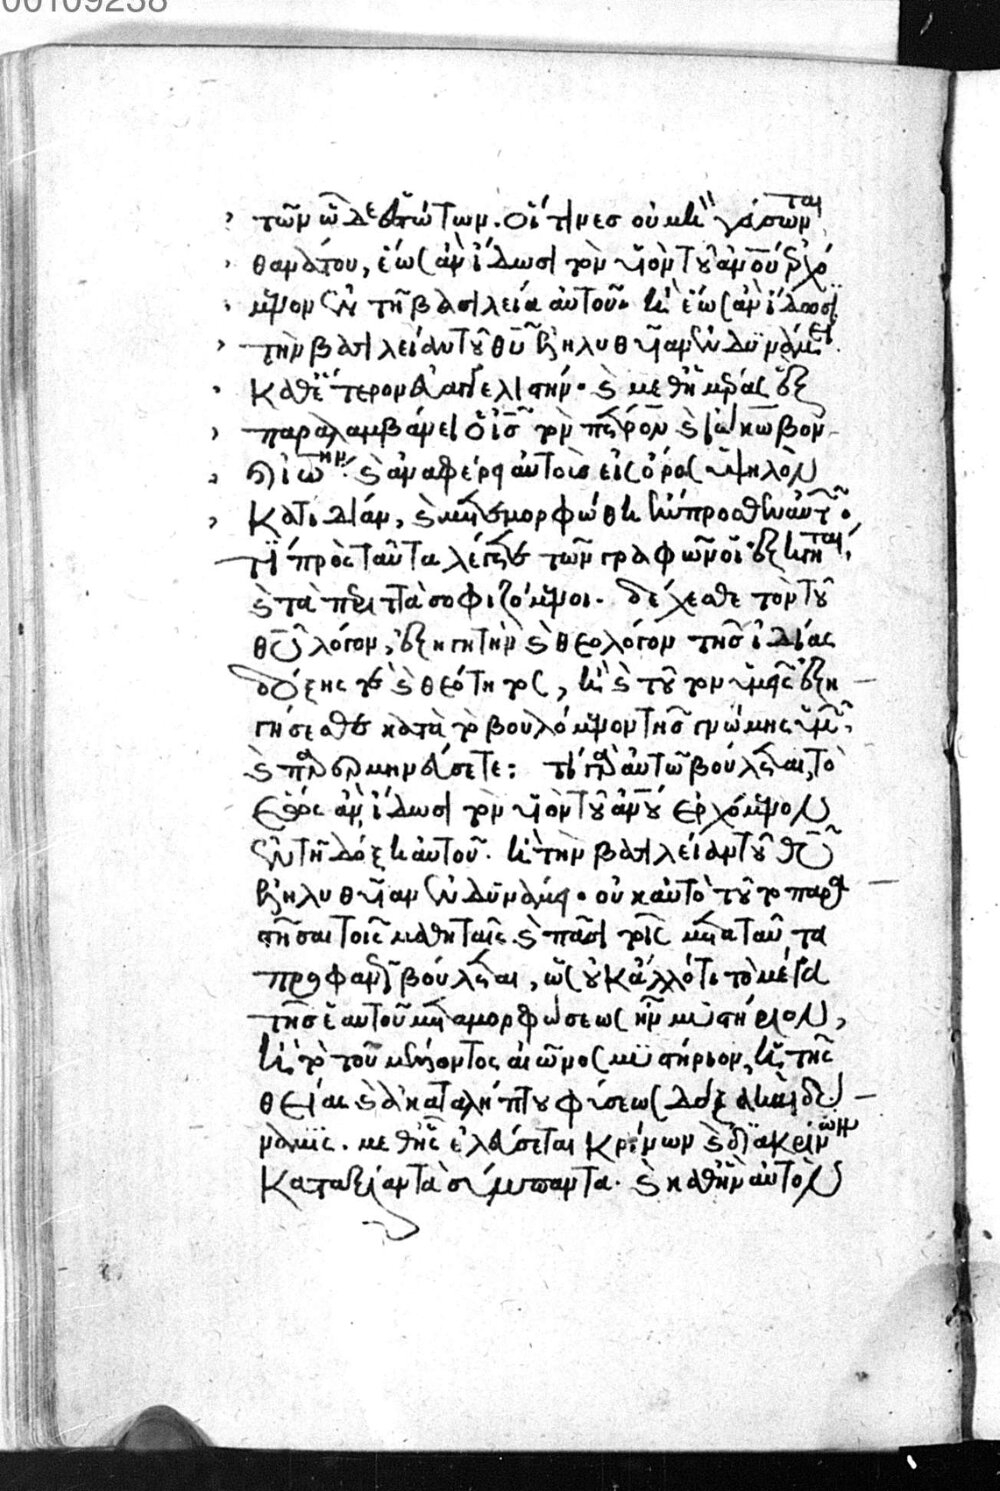 00109238
τῶν ὧδε ἑστώτων. οἵτινες οὐ μὴ γεύσωνται
θανάτου, ἕως ἂν ἴδωσι τὸν υἱὸν τοῦ ἀνου ἐρχό
μενον ἐν τῇ βασιλεία αὐτοῦ. καὶ ἕως ἂν ἴδωσι
τὴν βασιλείαν τοῦ θῦ ἐληλυθυῖαν ἐν δυνάμει.
καθ' ἕτερον εὐαγγελιστήν. καὶ μεθ' ἡμέρας ἓξ
παραλαμβάνει ὁ ις τὸν πέτρον καὶ ἰάκωβον
καὶ ἰωνην. καὶ ἀναφέρει αὐτοὺς εἰς ὄρος ὑψηλὸν
κατιδίαν, καὶ μετεμορφώθη ἔμπροσθεν αὐτῶν.
τί πρὸς ταῦτα λέγετε τῶν γραφῶν οἱ ἐξηγηταί,
καὶ τὰ περιττὰ σοφιζόμενοι. δέχεσθε τὸν τοῦ
θῦ λόγον, ἐξηγητὴν καὶ θεολόγον τῆς ἰδίας
δόξης τὲ καὶ θεότητος, καὶ τοῦτον ὑμεῖς ἐξη
γήσεσθε κατὰ τὸ βουλόμενον τῆς γνώμης ὑμῶν,
τί αὐτῶ βούλεται, τὸ
ἕως ἂν ἴδωσι τὸν υἱὸν τοῦ ἀνου ἐρχόμενον
ἐν τῇ δόξη αὐτοῦ. καὶ τὴν βασιλείαν τοῦ θῦ
ἐληλυθυῖαν ἐν δυνάμει. οὐκ αὐτὸ τοῦτο παρα
στῆσαι τοῖς μαθηταῖς καὶ πᾶσι τοῖς μετὰ ταῦτα
βούλεται, ὡς οὐκ ἄλλό τι τὸ μέγα
τῆς ἑαυτοῦ μεταμορφώσεως ἦν μυστήριον,
καὶ τὸ τοῦ μέλλοντος αἰῶνος μυστήριον, καὶ τῆς
θείας καὶ ἀκαταλήπτου φύσεως δόξα καὶ δύ
ναμις. μεθ' ἧς ἐλεύσεται κρίνων καὶ διακρίνων
κατ' ἀξίαν τὰ σύμπαντα. καὶ καθ' ἣν αὐτὸν